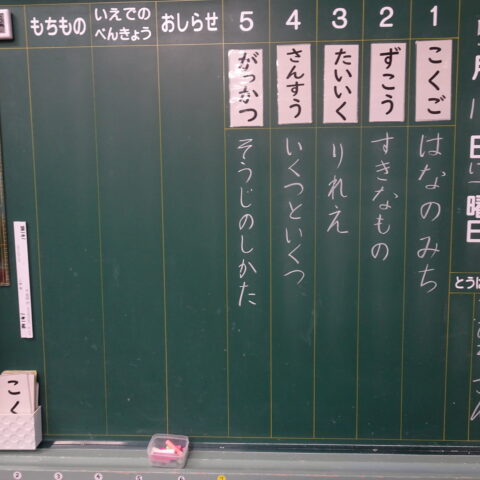 月
日
曜日
とうば
1
こくご
はなのみち
2
ずこう
すきなもの
3
たいいく
りれえ
4
さんすう
いくつといくつ
5
がっかつ
そうじのしかた
おしらせ
いえでの
べんきょう
もちもの
こく